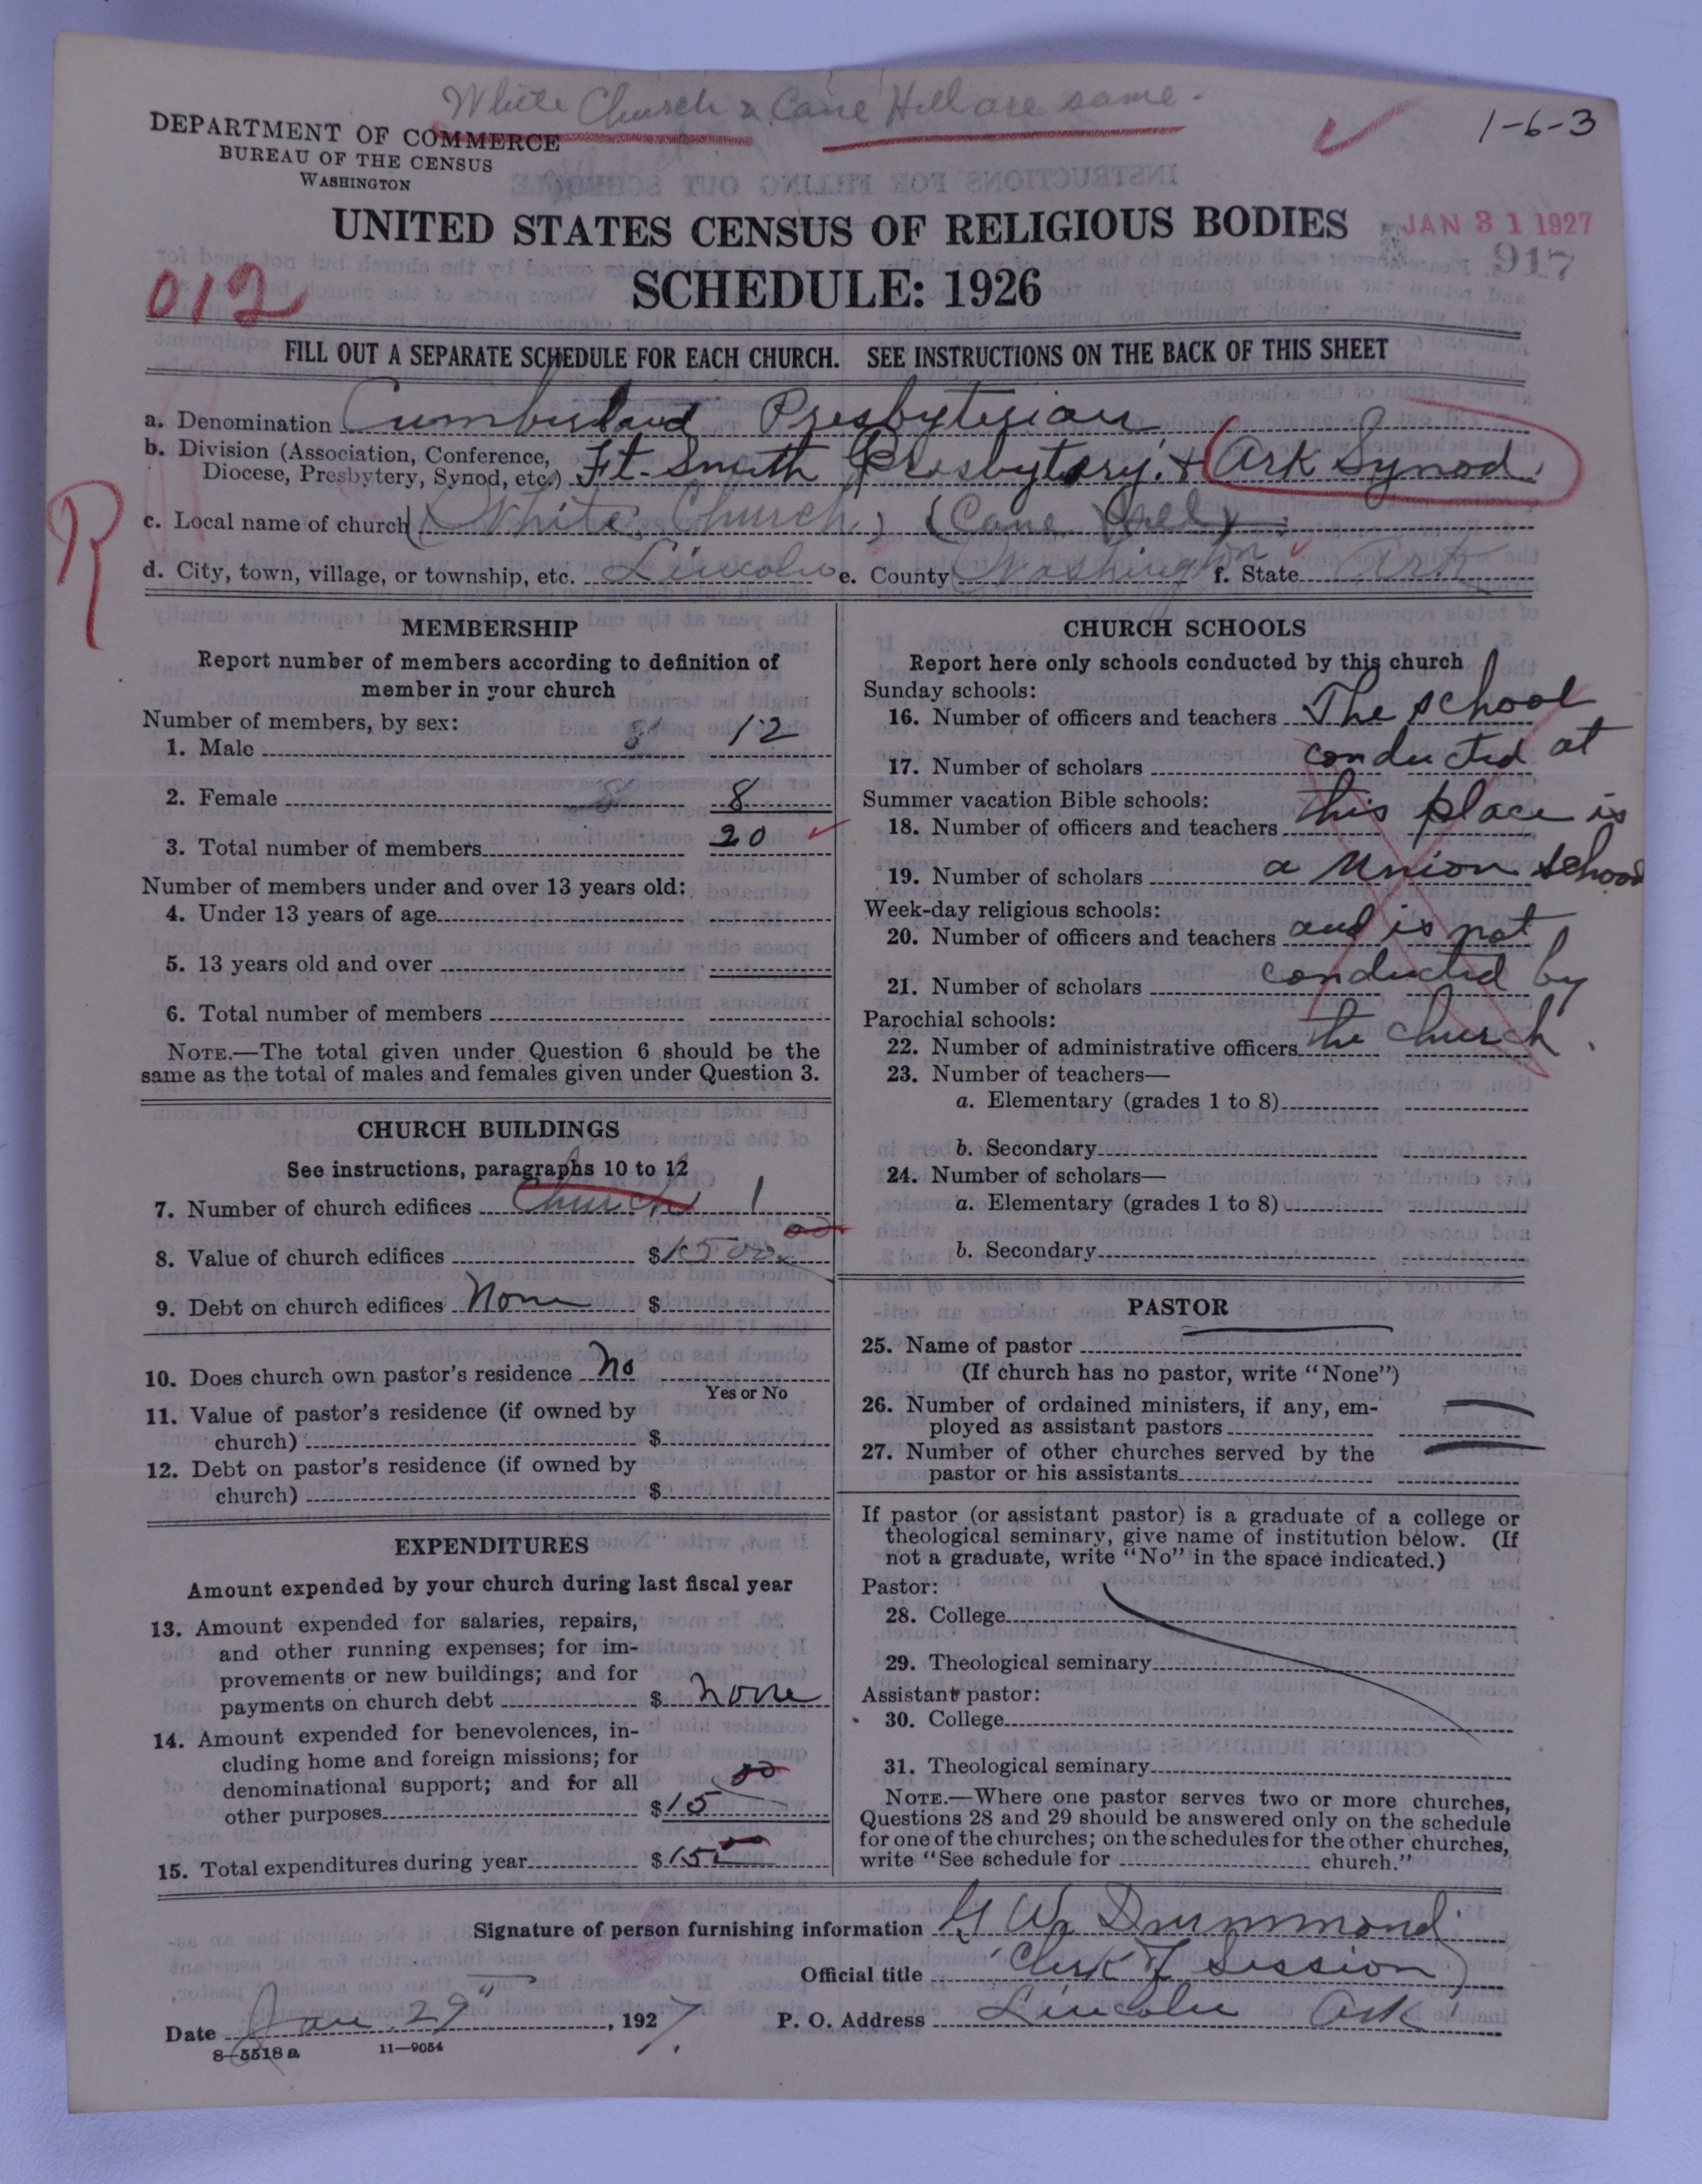 White Church & Cane Hill are same.
1-6-3
DEPARTMENT OF COMMERCE
BUREAU OF THE CENSUS
WASHINGTON
UNITED STATES CENSUS OF RELIGIOUS BODIES
JAN 31 1927
917
012
SCHEDULE: 1926
FILL OUT A SEPARATE SCHEDULE FOR EACH CHURCH. SEE INSTRUCTIONS ON THE BACK OF THIS SHEET
a. Denomination Cumberland Presbyterian
b. Division (Association, Conference,
Diocese, Presbytery, Synod, etc.) Ft. Smith Presbytery. & Ark Synod.
R
c. Local name of church (White Church) (Cane Hill)
d. City, town, village, or township, etc. Lincoln e. County Washington f. State Ark
MEMBERSHIP
Report number of members according to definition of
member in your church
Number of members, by sex:
1. Male 8 12
2. Female 8 8
3. Total number of members 20
Number of members under and over 13 years old:
4. Under 13 years of age
5. 13 years old and over
6. Total number of members
NOTE.—The total given under Question 6 should be the
same as the total of males and females given under Question 3.
CHURCH BUILDINGS
See instructions, paragraphs 10 to 12
7. Number of church edifices Church 1
8. Value of church edifices $1500 00
9. Debt on church edifices None $
10. Does church own pastor's residence No
Yes or No
11. Value of pastor's residence (if owned by
church) $
12. Debt on pastor's residence (if owned by
church) $
EXPENDITURES
Amount expended by your church during last fiscal year
13. Amount expended for salaries, repairs,
and other running expenses; for im-
provements or new buildings; and for
payments on church debt $ None
14. Amount expended for benevolences, in-
cluding home and foreign missions; for
denominational support; and for all
other purposes $15 00
15. Total expenditures during year $15
CHURCH SCHOOLS
Report here only schools conducted by this church
Sunday schools:
16. Number of officers and teachers The school
17. Number of scholars conducted at
Summer vacation Bible schools:
18. Number of officers and teachers this place is
19. Number of scholars a Union school
Week-day religious schools:
20. Number of officers and teachers and is not
21. Number of scholars conducted by
Parochial schools:
22. Number of administrative officers the church.
23. Number of teachers—
a. Elementary (grades 1 to 8)
b. Secondary
24. Number of scholars—
a. Elementary (grades 1 to 8)
b. Secondary
PASTOR
25. Name of pastor
(If church has no pastor, write "None")
26. Number of ordained ministers, if any, em-
ployed as assistant pastors
27. Number of other churches served by the
pastor or his assistants
If pastor (or assistant pastor) is a graduate of a college or
theological seminary, give name of institution below. (If
not a graduate, write "No" in the space indicated.)
Pastor:
28. College
29. Theological seminary
Assistant pastor:
30. College
31. Theological seminary
NOTE.—Where one pastor serves two or more churches,
Questions 28 and 29 should be answered only on the schedule
for one of the churches; on the schedules for the other churches,
write "See schedule for church."
Signature of person furnishing information G W Drummond
Official title Clerk of Session
Date Jan. 29", 1927.
P. O. Address Lincoln Ark
8-5518a 11-9054